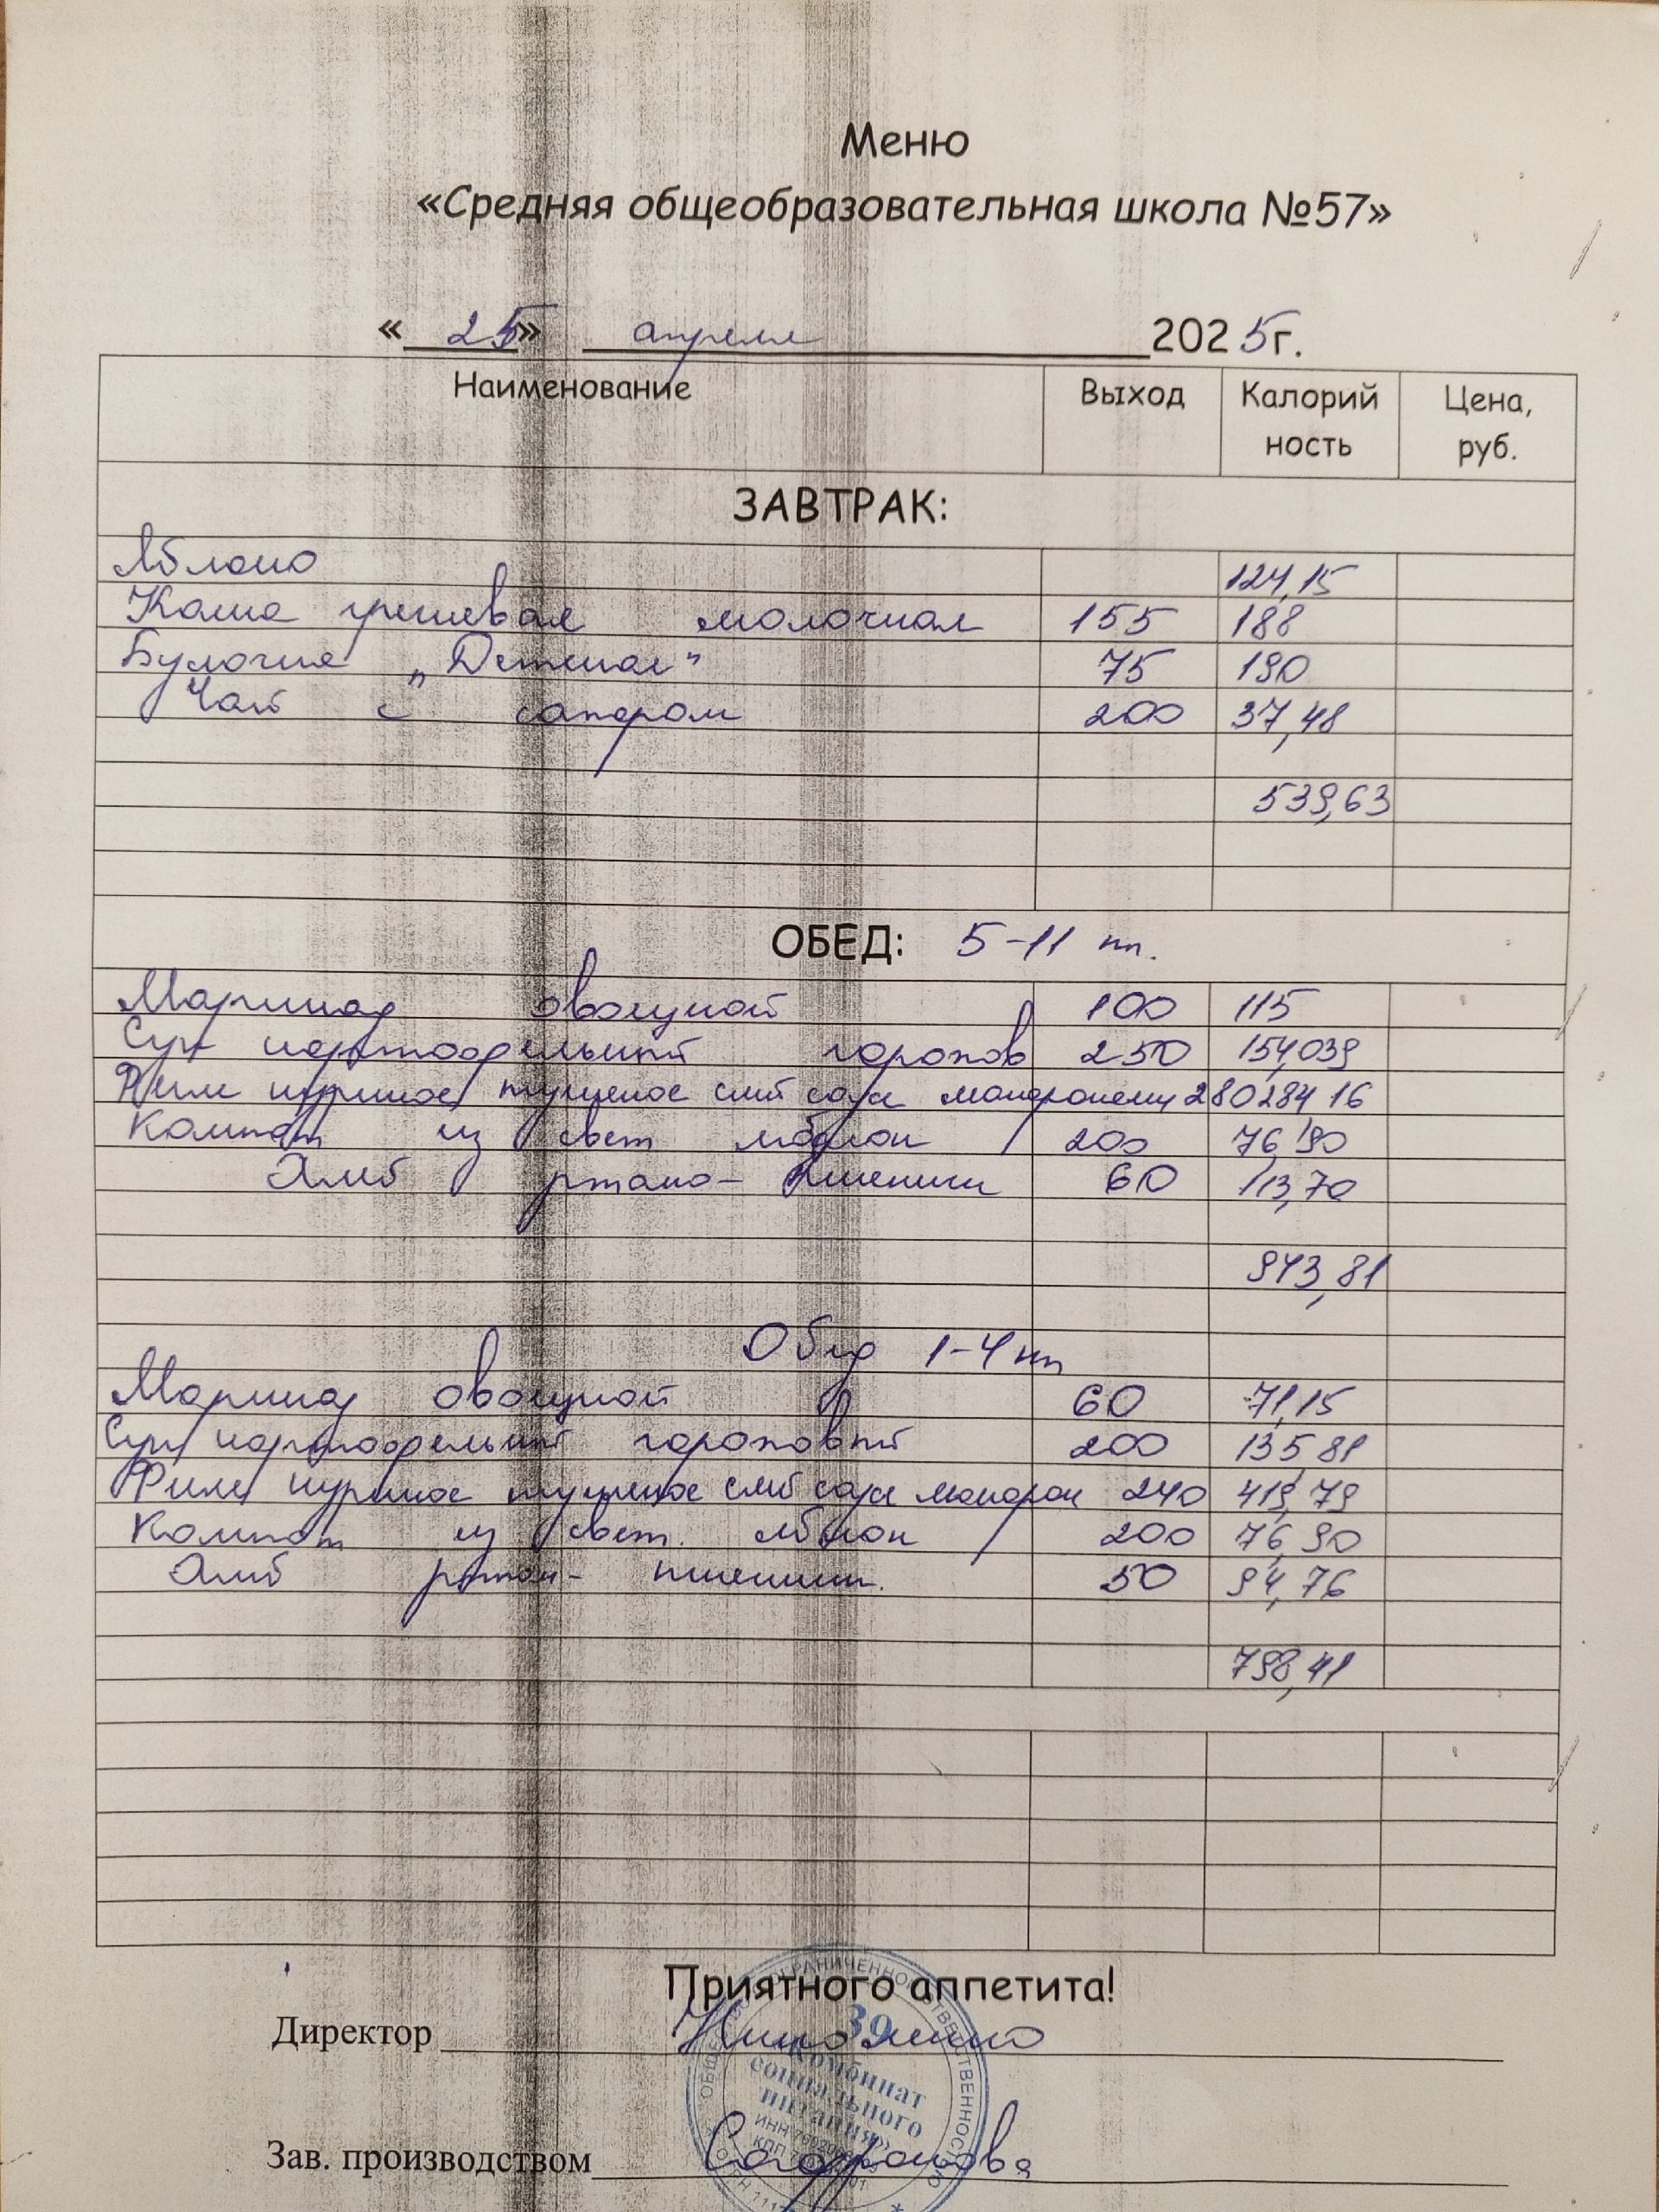 Меню
«Средняя общеобразовательная школа №57»
« 25 » апреля 2025г.
Наименование Выход Калорий Цена,
ность руб.
ЗАВТРАК:
Яблоко 124,15
Каша гречневая молочная 155 188
Булочка „Детская" 75 190
Чай с сахаром 200 37,48
539,63
ОБЕД: 5-11 кл.
Маринад овощной 100 115
Суп картофельный горохов 250 154,039
Филе куриное тушеное смет соус макароны 280 284 16
Компот из свеж яблок 200 76,90
Хлеб ржано- пшеничн 60 113,70
943,81
Обед 1-4 кл
Маринад овощной 60 71,15
Суп картофельный гороховый 200 135,81
Филе куриное тушеное смет соус макарон 240 419,79
Компот из свеж. яблок 200 76,90
Хлеб ржан- пшеничн. 50 94,76
798,41
Приятного аппетита!
Директор
39
«Комбинат
социального
питания»
Зав. производством Сафронова